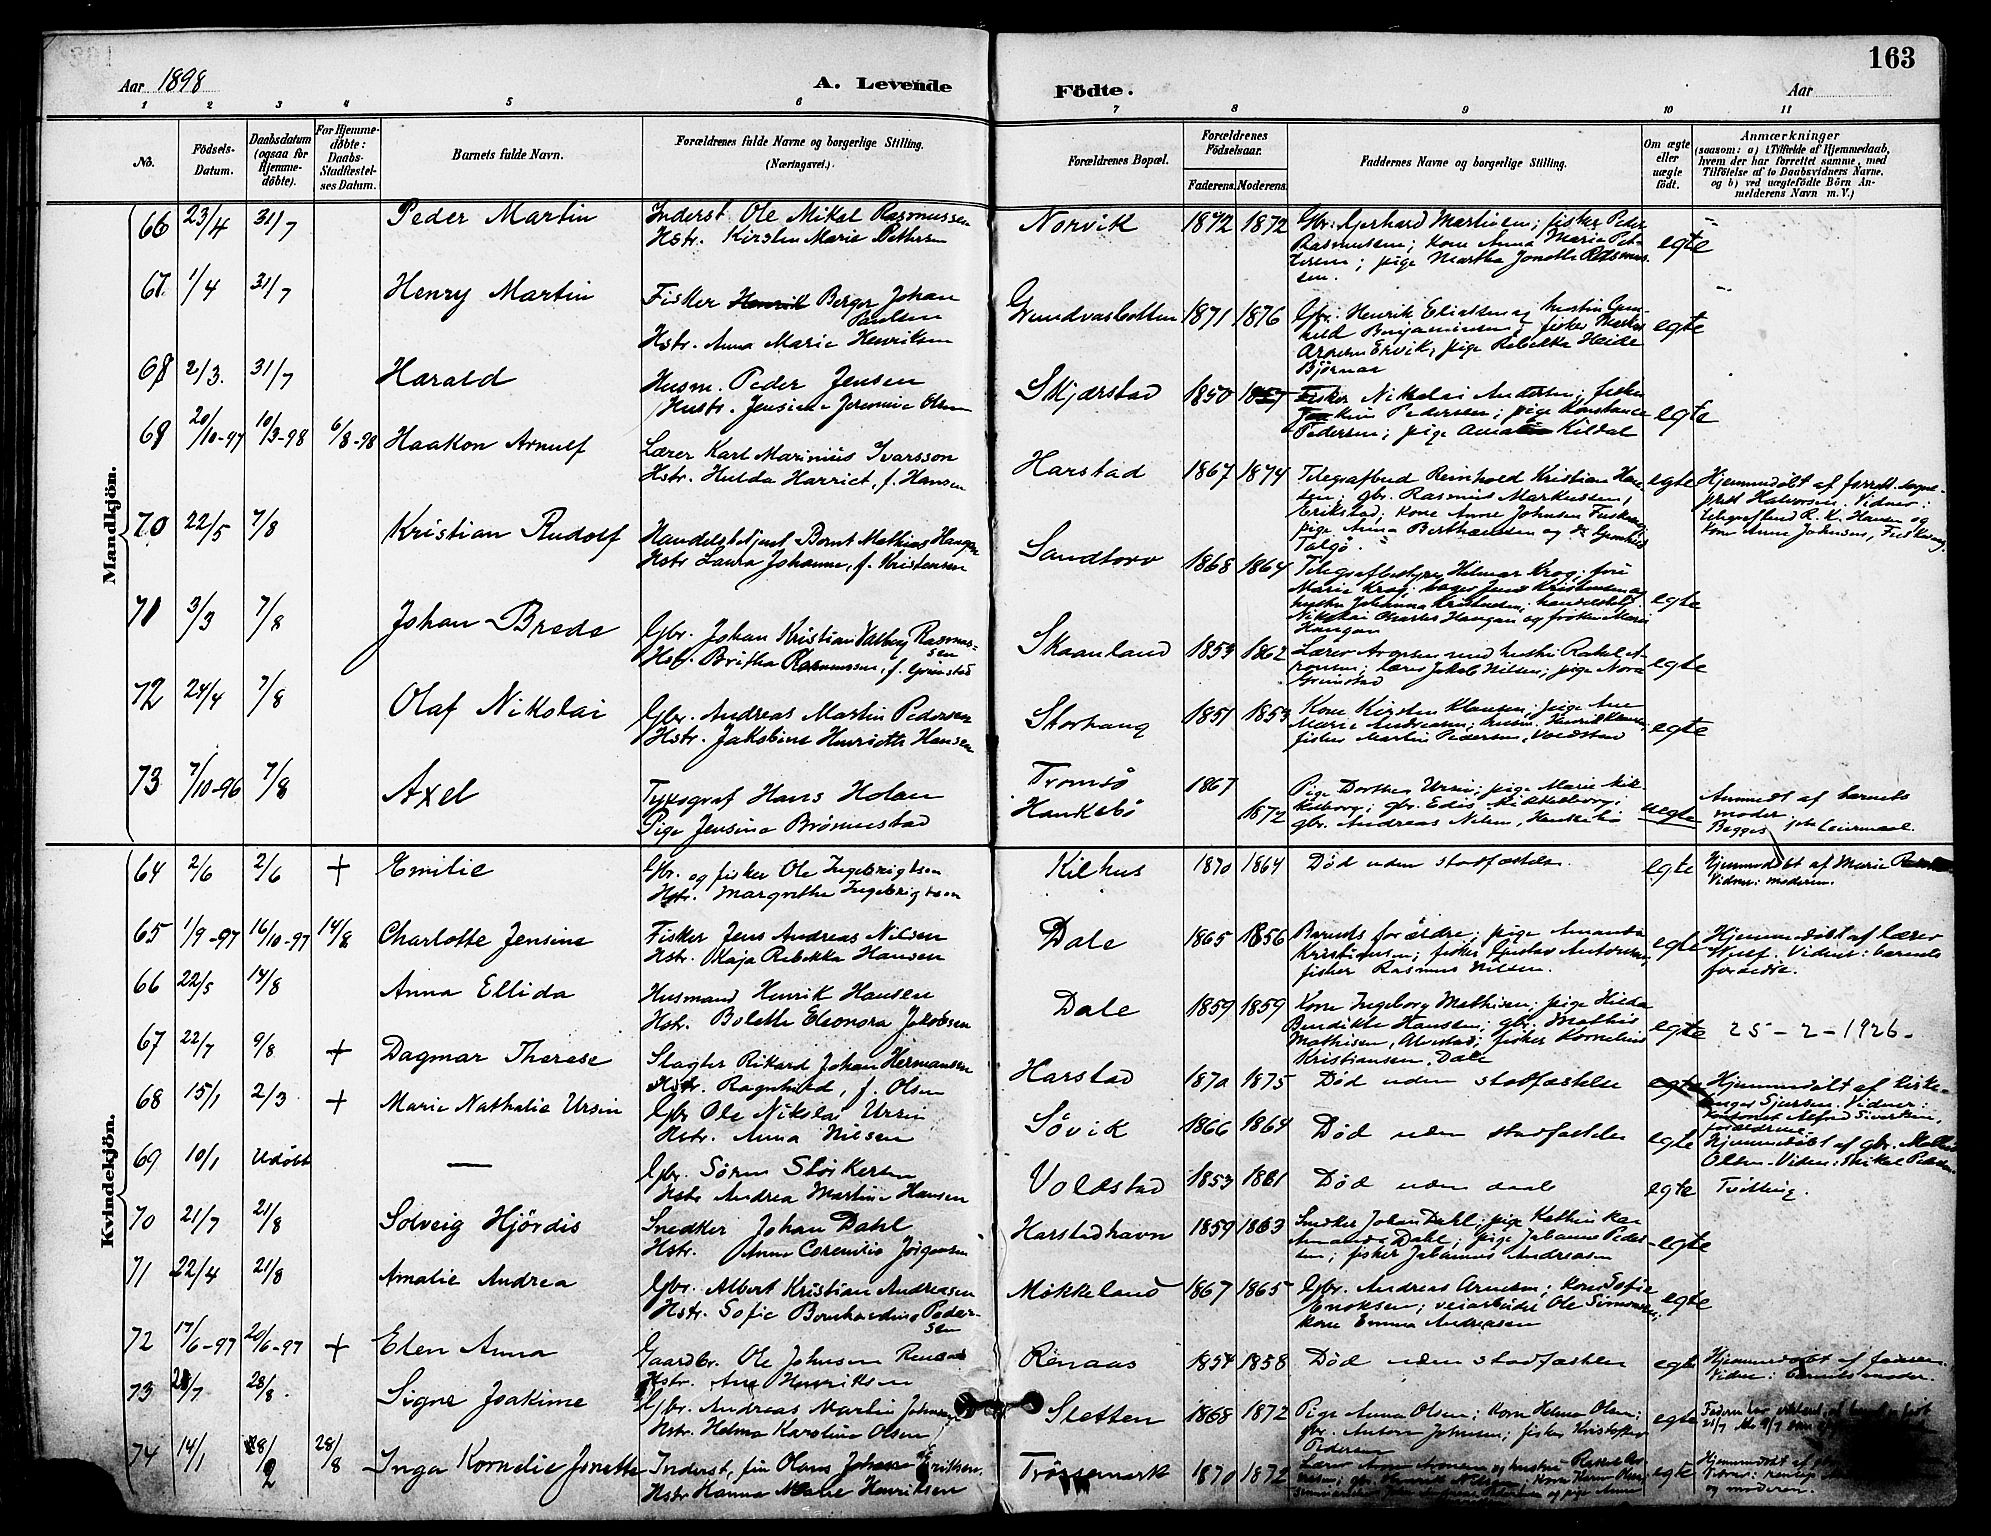 163
Aar 1898
A. Levende
Födte.
Aar
1 2 3 4 5 6 7 8 9 10 11
No.
Födsels-
Datum.
Daabsdatum
(ogsaa for
Hjemme-
döbte).
For Hjemme-
döbte:
Daabs-
Stadfæstel-
ses Datum.
Barnets fulde Navn.
Forældrenes fulde Navne og borgerlige Stilling.
(Næringsvei.)
Forældrenes Bopæl.
Forældrenes
Födselsaar.
Faderens. Moderens.
Faddernes Navne og borgerlige Stilling.
Om ægte
eller
uægte
födt.
Anmærkninger
(saasom: a) i Tilfælde af Hjemmedaab,
hvem der har forrettet samme, med
Tilföielse af to Daabsvidners Navne,
og b) ved uægtefödte Börn An-
melderens Navn m. V.)
Mandkjön.
66 23/4 31/7 Peder Martin
Inderst. Ole Mikal Rasmussen
Hstr. Kirsten Marie Pettersen
Norvik 1872 1872
Gbr. Gerhard Martinsen; fisker Peder
Rasmussen; kone Anna Marie Pet-
tersen; pige Martha Jonette Rasmus-
sen.
egte
67. 1/4 31/7 Henry Martin
Fisker Henrik Berger Johan
Paulsen
Hstr. Anna Marie Henriksen
Grundvasbotten 1871 1876
Gbr. Henrik Eliassen og hustru Gun-
hild Benjaminsen; fisker
pige Rebekka
Björnar
egte
68 2/3. 31/7 Harald
Husm. Peder Jensen
Hustr. Jensine Jeremine Olsen
Skjærstad 1850
Fisker Nikolai Andersen; fisker
Pedersen; pige Konstance
Pedersen; pige Kildal
egte
69 20/10-97 10/3-98 6/8-98 Haakon Arnulf
Lærer Karl Marinius Ivarsson
Hstr. Hulda Harriet, f. Hansen
Harstad 1867 1874
Telegrafbud Reinhold Kristian Han-
sen; gbr. Rasmus Markussen,
Erikstad; kone Anne Johnsen
pige Anna Berthensen og
Talgö.
egte
Hjemmedöbt af forrett. sogne-
prest Halvorsen. Vidner:
telegrafbud R. K. Hansen og
kone Anne Johnsen,
70 22/5 7/8 Kristian Rudolf
Handelsbetjent Bernt Mathias Haugan
Hstr Laura Johanne, f. Kristensen
Sandtorv 1868 1864
Telegrafbestyrer Hilmar Krog; frue
Marie Krog; Jens Kristensen og
hustru Johanna Kristensen;
Nikolai Charles Haugan og fröken Marie
Haugan
egte
71 3/3 7/8 Johan Brede
Gbr. Johan Kristian Valberg Rasmus-
sen
Hstr. Britha Rasmussen, f. Grimstad
Skaanland 1853 1862
Lærer Aronsen med hustru Rakel A-
ronsen; lærer Jakob Nilsen; pige Nora
Grimstad
egte
72 24/4 7/8 Olaf Nikolai
Gbr. Andreas Martin Pedersen
Hstr. Jakobine Henriette Hansen
Storhaug 1851 1853
Kone Kirsten Klausen; pige Ane
Marie Andreasen; husm. Henrik Klausen;
fisker Martin Pedersen, Voldstad
egte
73 7/10-96 7/8 Axel
Typograf Hans Holan
Pige Jensine Brömnestad
Tromsö 1867
Haukebö 1872
Pige Dorthea Ursin; pige Marie Mik-
kelborg; gbr. Edis Mikkelborg;
gbr. Andreas Nilsen,
uegte
Anmeldt af barnets
moder.
Begges 1ste leiermaal.
Kvindekjön.
64 2/6 2/6 + Emilie
Gbr. og fisker Ole Ingebrigtsen
Hstr. Margrethe Ingebrigtsen
Kilhus 1870 1864
Död uden stadfæstelse.
egte
Hjemmedöbt af Marie
Vidner: moderen.
65 1/9-97 16/10-97 14/8 Charlotte Jensine
Fisker Jens Andreas Nilsen
Hstr. Kaja Rebekka Hansen
Dale 1865 1856
Barnets forældre; pige Amanda
Kristiansen; fisker Gustav Antonsen;
fisker Rasmus Nilsen.
egte
Hjemmedöbt af lærer
Vidner: barnets
forældre.
66 22/5 14/8 Anna Ellida
Husmand Henrik Hansen
Hstr. Bolette Eleonora Jakobsen
Dale 1859 1859
Kone Ingeborg Mathisen; pige Hilda
Bendikte Hansen; gbr. Mathis
Mathisen, fisker Kornelius
Kristiansen, Dale
egte
25-2-1926.
67 22/7 9/8 + Dagmar Therese
Slagter Rikard Johan Hermansen
Hstr. Ragnhild, f. Olsen
Harstad 1870 1875
Död uden stadfæstelse
egte
Hjemmedöbt af kirke-
sanger Sjursen. Vidner:
Alfred Sivertsen,
forældrene.
68 15/1 2/3 + Marie Nathalie Ursin
Gbr Ole Nikolai Ursin
Hstr. Anna Nilsen
Sövik 1866 1864
Död uden stadfæstelse
egte
Hjemmedöbt af gbr.
Olsen. Vidner: Mikal Pedersen
69 10/1 Udöbt —
Gbr. Sören Störkersen
Hstr Andrea Martine Hansen
Voldstad 1853 1861
Död uden daab
egte
Tvilling.
70 21/7 21/8 Solveig Hjördis
Snedker Johan Dahl
Hstr. Anna Jörgensen
Harstadhavn 1859 1863
Snedker Johan Dahl; pige Kathinka
Amanda Dahl; pige Johanna Peder-
sen; fisker Johannes Andreasen
egte
71 22/4 21/8 Amalie Andrea
Gbr. Albert Kristian Andreasen
Hstr. Sofie Bernhardine Peder-
sen
Mökkeland 1867 1865
Gbr. Andreas Arnesen; kone Sofie
Enoksen; veiarbeider Ole Simonsen;
kone Emma Andreasen
egte
72 17/6-97 20/6-97 + Elen Anna
Gaardbr. Ole Johnsen Renaas
Hstr. Ane Henriksen
Renaas 1854 1858
Död uden stadfæstelse
egte
Hjemmedöbt af faderen.
Vidner: barnets moder.
73 28/8. Signe Joakime
Gbr. Andreas Martin Johnsen
Hstr. Helma Karoline Olsen
Sletten 1868 1872
Pige Anna Olsen; kone Helena Olsen;
gbr. Anton Johnsen; fisker Kristoffer
Pedersen
egte
74 14/1 28/2 28/8 Inga Kornelie Jonette
Inderst, Olaus Johan Eriksen.
Hstr Hanna Marie Henriksen
Trössemark 1870 1872
Lærer Aron Aronsen og hustru Rakel
egte
Hjemmedöbt af
Vidner:
og moderen.